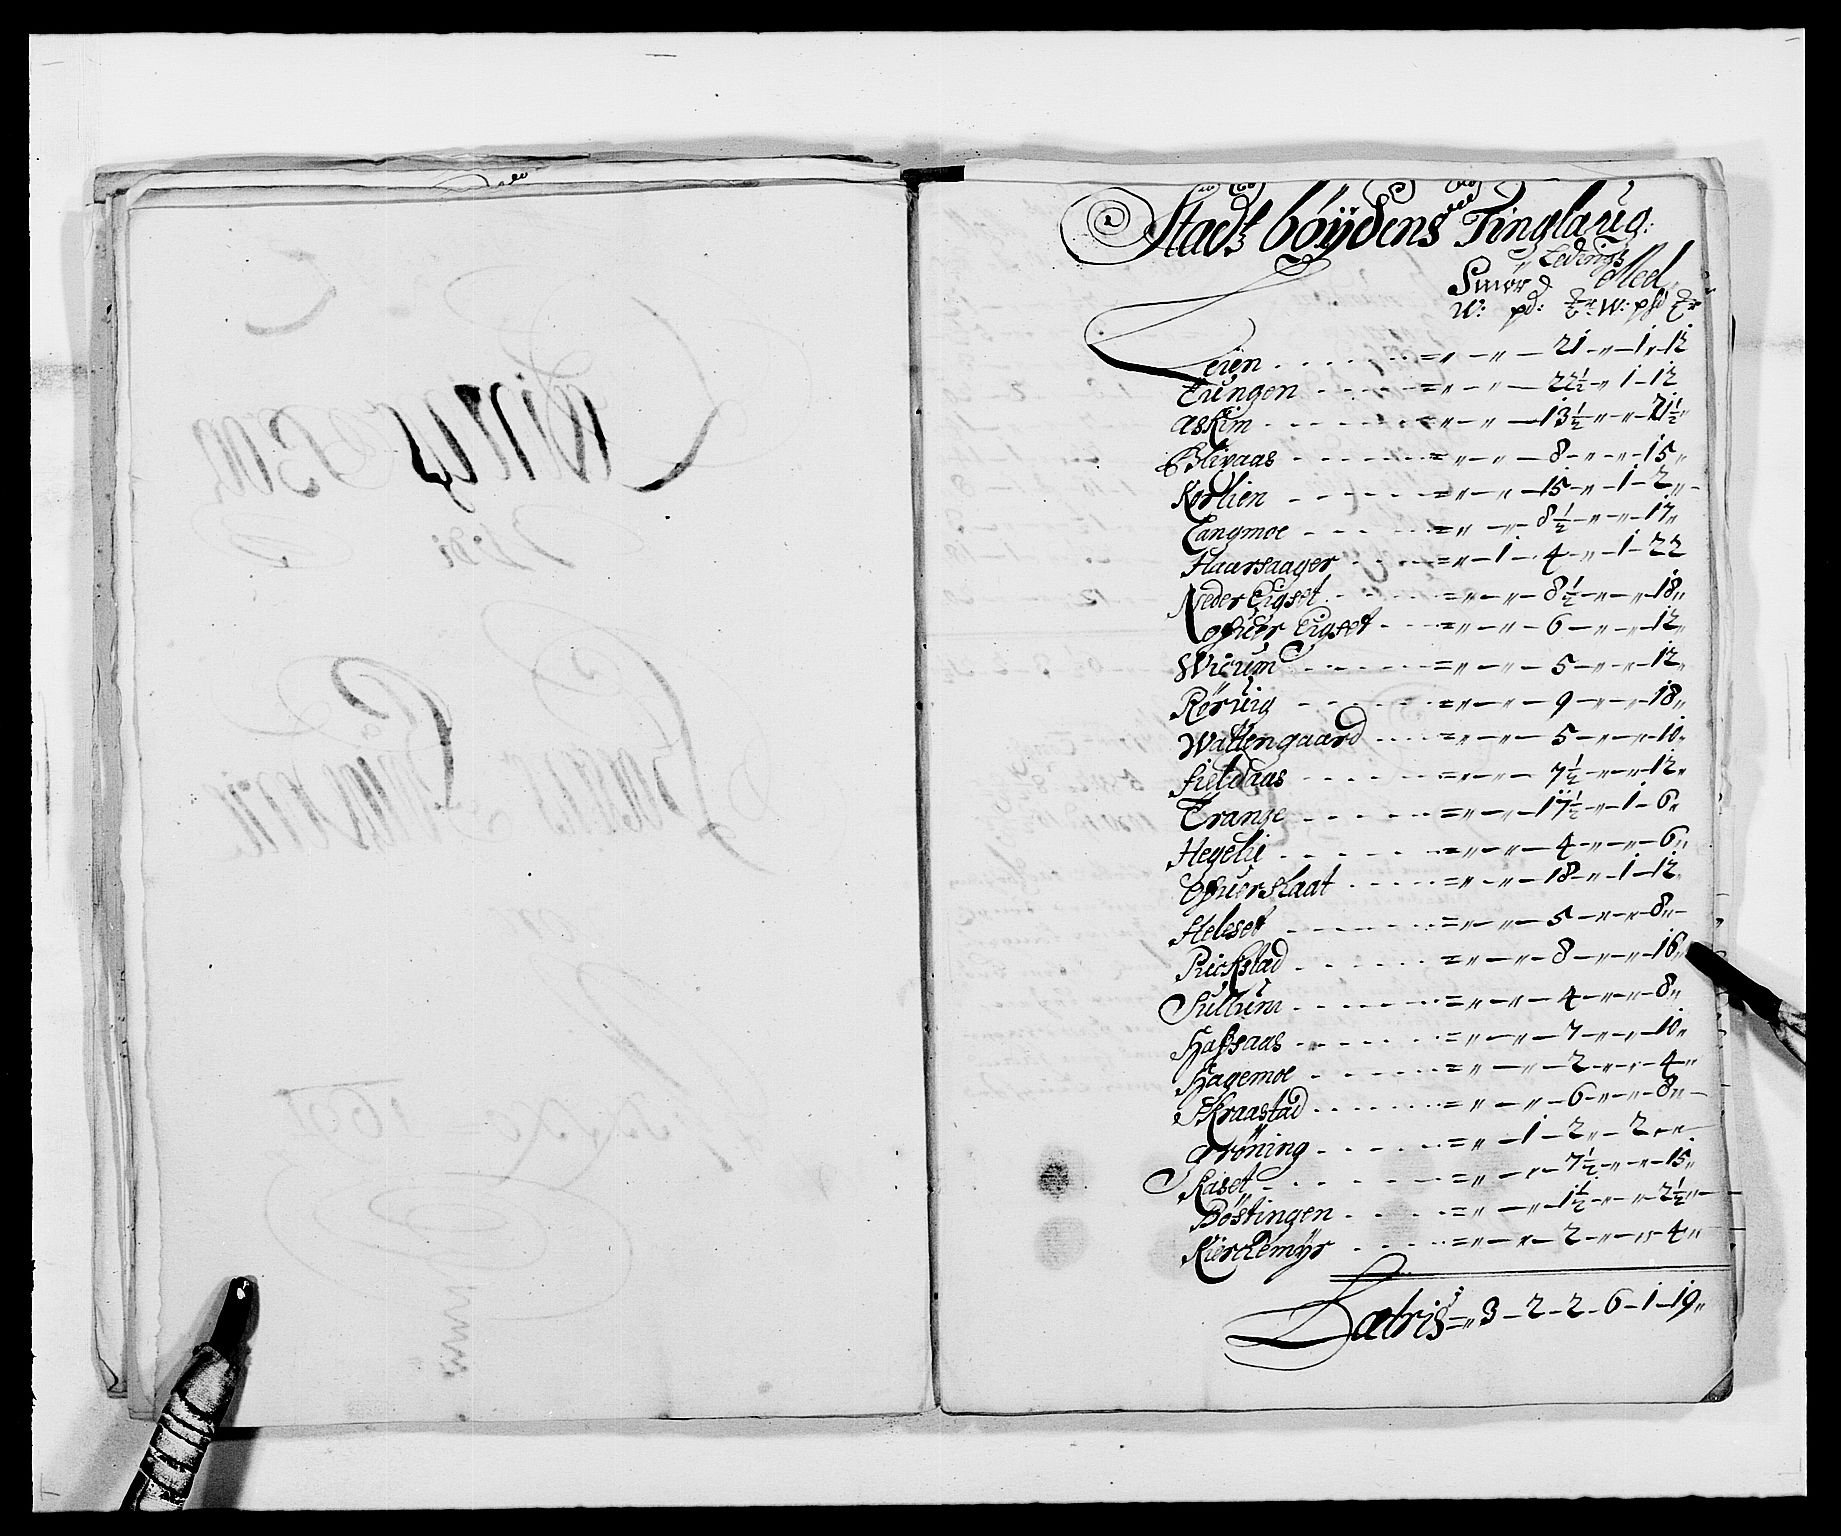 Stadtz böÿdens Tinglaug:
Ledings
Smör Mel
W: pd: W: pd
Leien = „ — „ — 21 — „ — 1 „ 12
Tungen = „ — „ — 22½ — „ 1 — 12
Askim = „ — „ — 13½ — „ — „ — 21½
Blivaas = „ — „ — 8 — „ — „ — 15 „
Korlien = „ — „ — 15 — „ — 1 — 2 „
Tangmoe = „ — „ — 8½ — „ — „ — 17 „
Haarsaager = „ — 1 — 4 — „ — 1 — 22
Neder Eigset = „ — „ — 8½ — „ — „ — 18 „
ofuer Eigset = „ — „ — 6 — „ — „ — 12 „
Wicum = „ — „ — 5 — „ — „ — 12 „
Rörüig = „ — „ — 9 — „ — „ — 18 „
Wattengaard = „ — „ — 5 — „ — „ — 10 „
fieldaas = „ — „ — 7½ — „ — „ — 12 „
Trange = „ — „ — 17½ — „ — 1 — 6 „
Hegelii = „ — „ — 4 — „ — „ — 6 „
Ofuerskaat = „ — „ — 18 — „ — 1 — 12
Heleset = „ — „ — 5 — „ — „ — 8 „
Rickstad = „ — „ — 8 — „ — „ — 16 „
Sullum = „ — „ — 4 — „ — „ — 8 „
Hafsaas = „ — „ — 7 — „ — „ — 10 „
Hagemoe = „ — „ — 2 — „ — „ — 4 „
Skraastad = „ — „ — 6 — „ — „ — 8 „
Gröning = „ — 1 — 2 „ — 2 — „ — „
Kaset = — „ — „ — 7½ — „ — „ — 15 „
Böstingen = „ — „ — 1½ — „ — „ — 2½ „
Kierckemÿr = „ — „ — 2 — „ — „ — 4 „
Lateris = „ 3 — 2 — 2 — 6 — 1 — 19 „